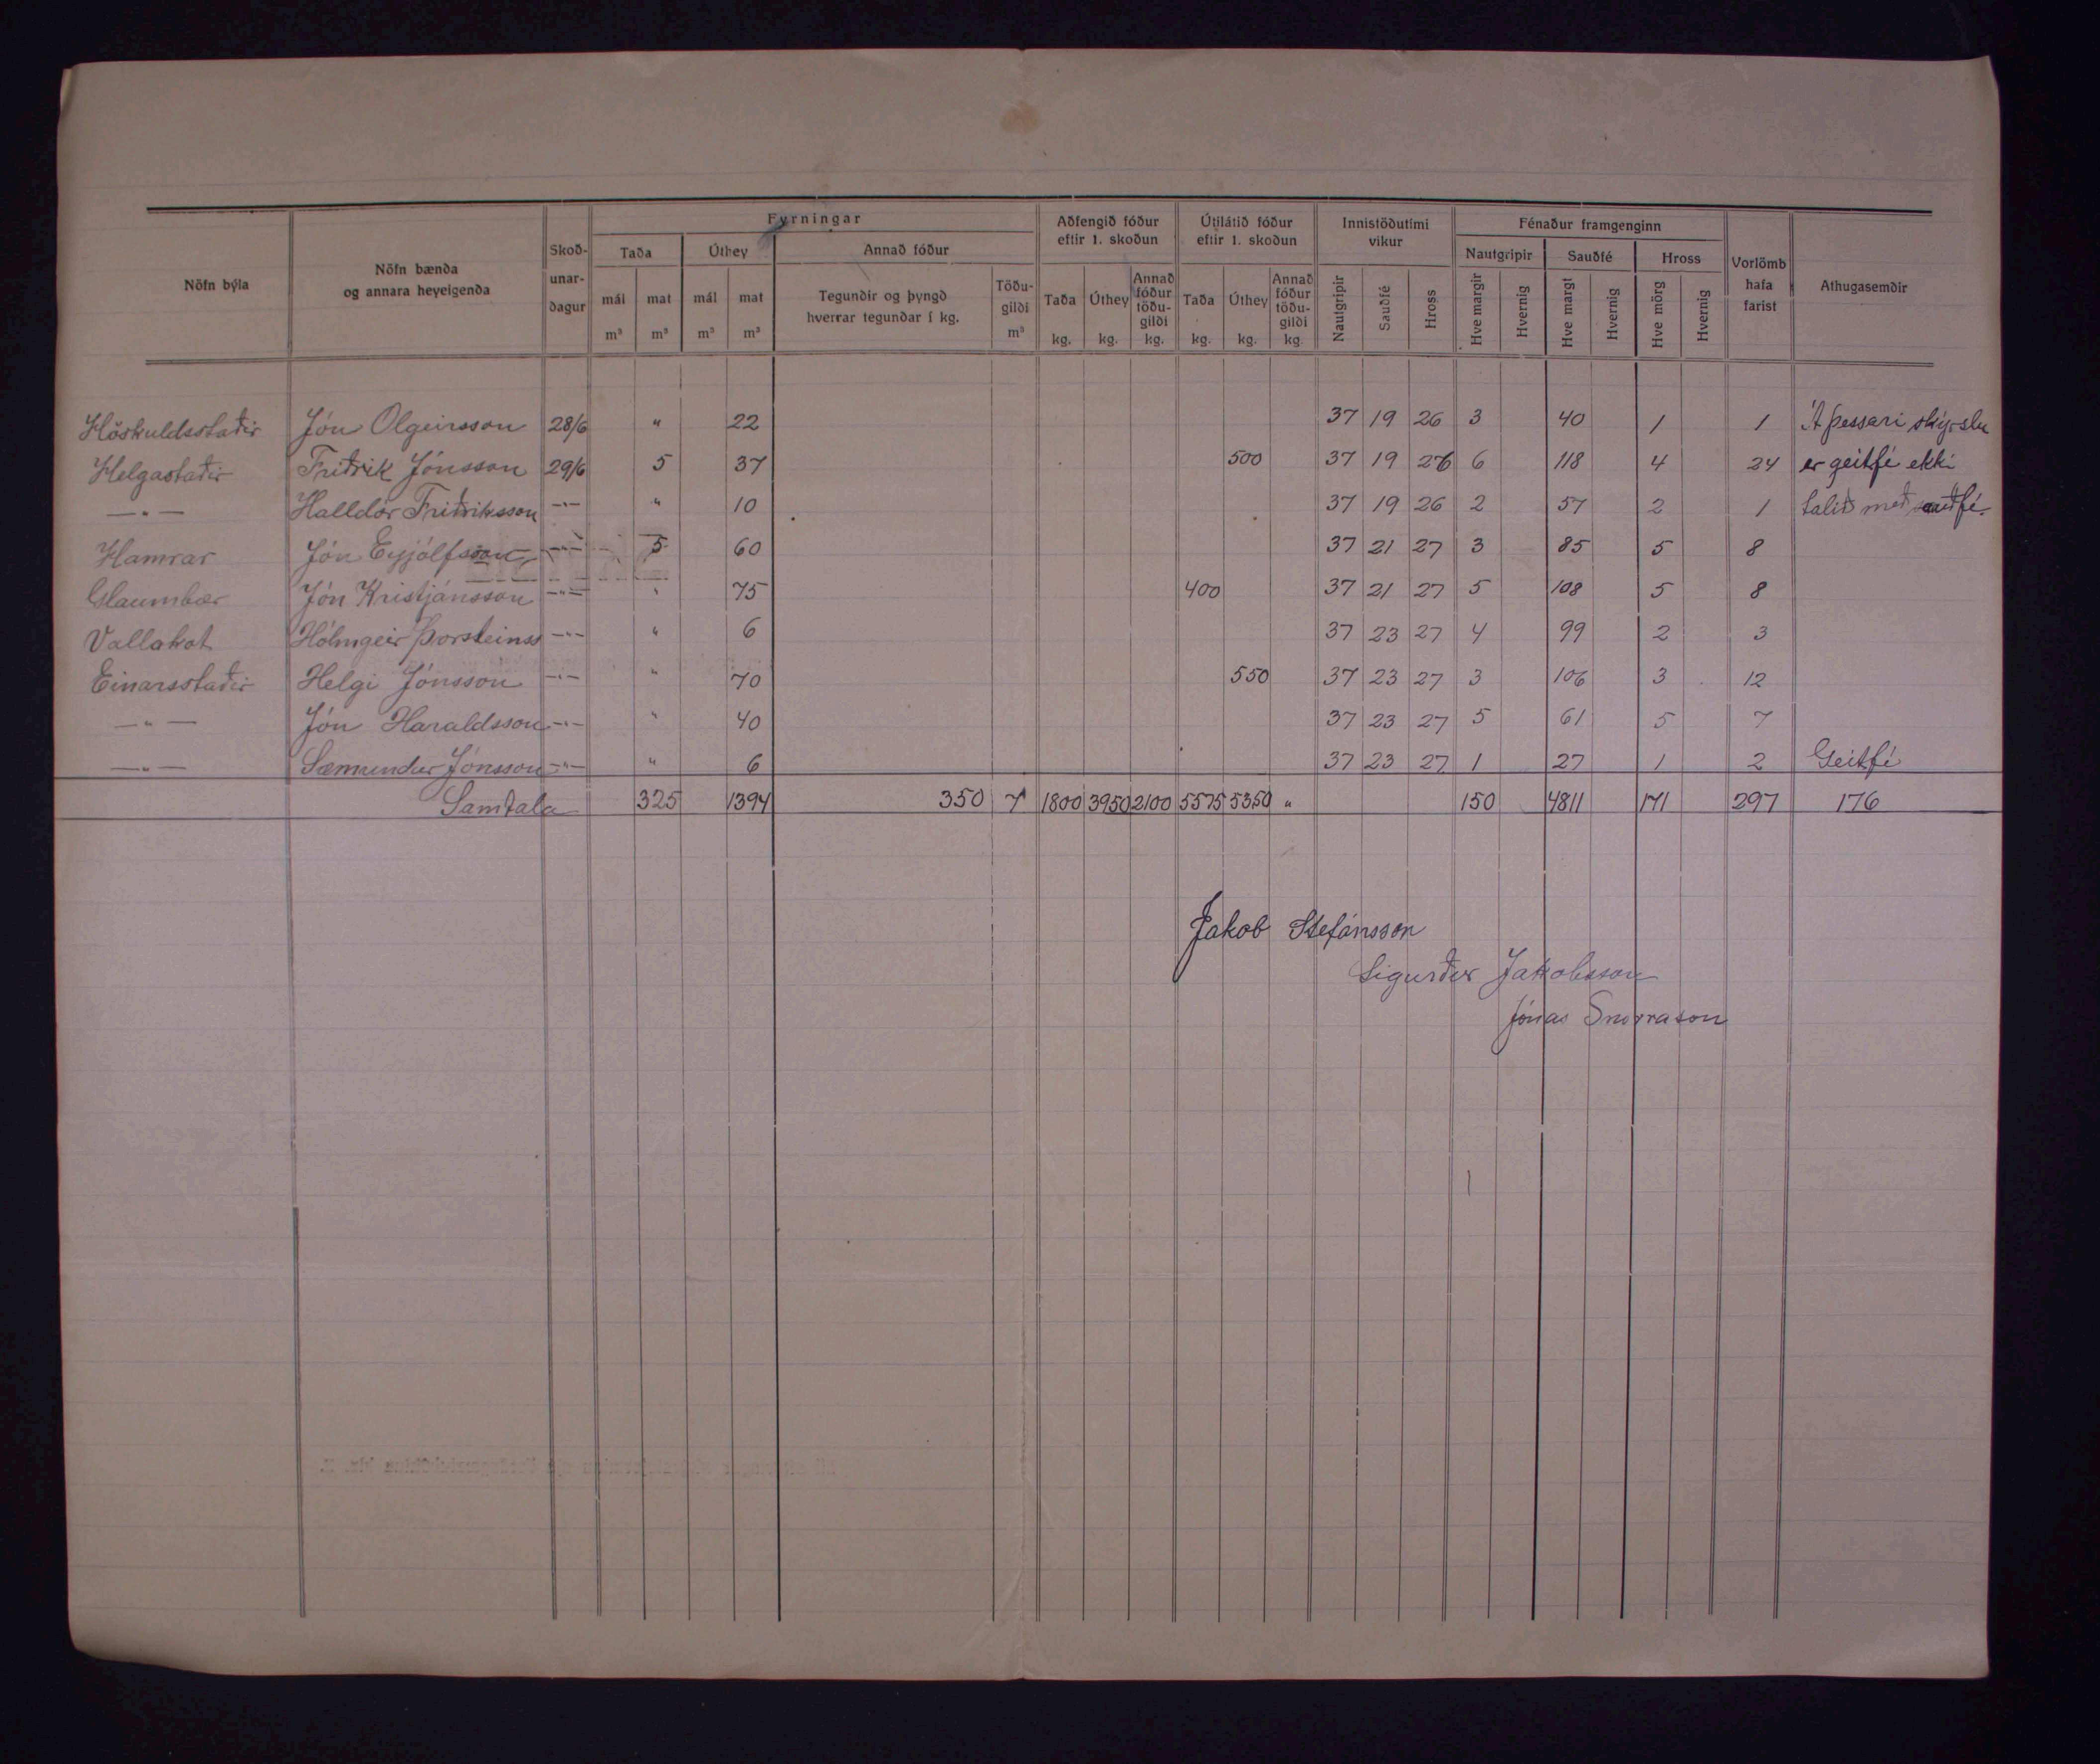 Fyrningar
Aðfengið fóður eftir 1. skoðun
Útilátið fóður eftir 1. skoðun
Innistöðutími vikur
Fénaður framgenginn
Nöfn býla
Nöfn bænda og annara heyeigenda
Skoð-unar-dagur
Taða
Úthey
Annað fóður
Nautgripir
Sauðfé
Hross
Vorlömb hafa farist
Athugasemdir
mál m³
mat m³
mál m³
mat m³
Tegundir og þyngd hverrar tegundar í kg.
Töðu-gildi m³
Taða kg.
Úthey kg.
Annað fóður töðu-gildi kg.
Taða kg.
Úthey kg.
Annað fóður töðu-gildi kg.
Nautgripir
Sauðfé
Hross
Hve margir
Hvernig
Hve margt
Hvernig
Hve mörg
Hvernig
Höskuldsstaðir Jón Olgeirsson 28/6 " 22 37 19 26 3 40 1 1 Á þessari skýrslu
Helgastaðir Friðrik Jónsson 29/6 5 37 500 37 19 26 6 118 4 24 er geitfé ekki
—"— Halldór Friðriksson —"— " 10 37 19 26 2 57 2 1 talið með sauðfé.
Hamrar Jón Eyjólfsson —"— 5 60 37 21 27 3 85 5 8
Glaumbær Jón Kristjánsson —"— " 75 400 37 21 27 5 108 5 8
Vallakot Hólmgeir Þorsteinss —"— " 6 37 23 27 4 99 2 3
Einarsstaðir Helgi Jónsson —"— " 70 550 37 23 27 3 106 3 12
—"— Jón Haraldsson —"— " 40 37 23 27 5 61 5 7
—"— Sæmundur Jónsson —"— " 6 37 23 27 1 27 1 2 Geitfé
Samtala 325 1394 350 7 1800 3950 2100 5575 5350 " 150 4811 171 297 176
Jakob Stefánsson
Sigurður Jakobsson
Jónas Snorrason